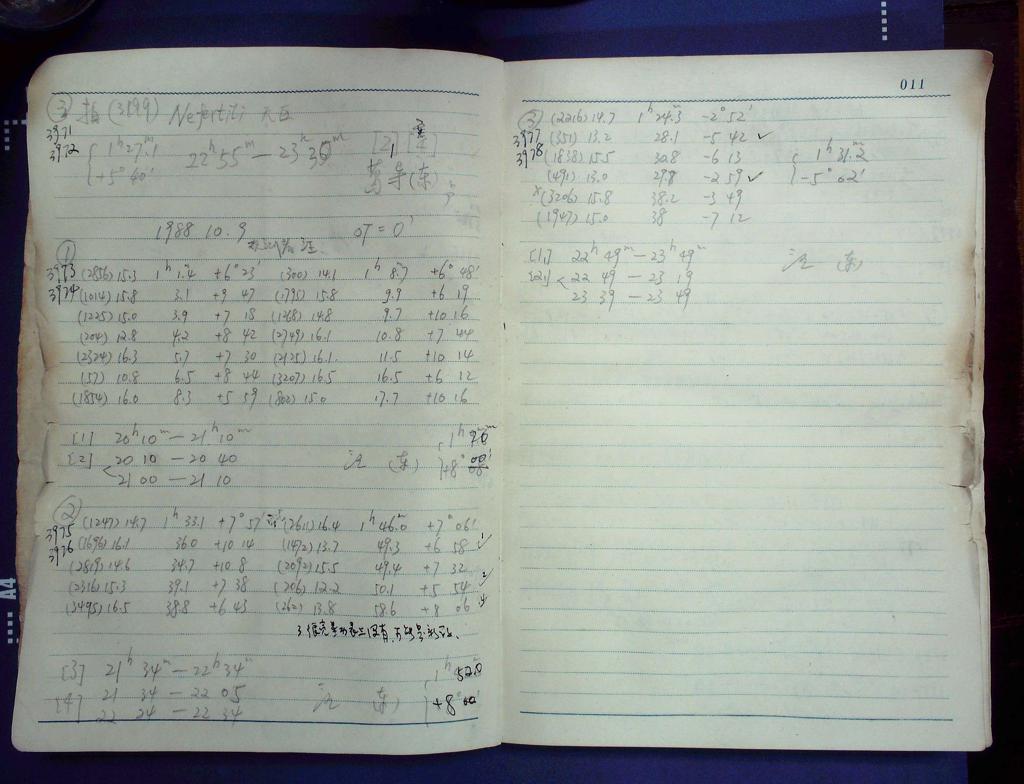 ③ 拍 (3199) Nefertiti
3971
3972 { 1ʰ27ᵐ.1 22ʰ55ᵐ — 23ʰ30ᵐ [2]
+5° 40' (东)
1988 10.9 0T = 0'
①
3973 (2856) 15.3 1ʰ 1.4 +6° 23' (300) 14.1 1ʰ 8.7 +6° 48'
3974 (1014) 15.8 3.1 +9 47 (1795) 15.8 9.9 +6 19
(1225) 15.0 3.9 +7 18 (1268) 14.8 9.7 +10 16
(204) 12.8 4.2 +8 42 (2749) 16.1 10.8 +7 44
(2324) 16.3 5.7 +7 30 (2125) 16.1 11.5 +10 14
(57) 10.8 6.5 +8 44 (3207) 16.5 16.5 +6 12
(1854) 16.0 8.3 +5 59 (802) 15.0 17.7 +10 16
[1] 20ʰ10ᵐ — 21ʰ10ᵐ
[2] 20 10 — 20 40 (东)
21 00 — 21 10
②
3975 (1247) 14.7 1ʰ 33.1 +7° 57' (2611) 16.4 1ʰ 46.0 +7° 06'
3976 (1696) 16.1 36.0 +10 14 (1472) 13.7 49.3 +6 58 ✓
(2819) 14.6 34.7 +10 8 (2092) 15.5 49.4 +7 32
(2316) 15.3 39.1 +7 38 (206) 12.2 50.1 +5 54 ✓
(3495) 16.5 38.8 +6 43 (262) 13.8 58.6 +8 06
[3] 21ʰ 34ᵐ — 22ʰ34ᵐ { 1ʰ 52.0
[4] 21 34 — 22 05 (东) +8° 00'
22 24 — 22 34
011
③ (2216) 14.7 1ʰ 24.3ᵐ -2° 52'
3977 (351) 13.2 28.1 -5 42 ✓
3978 (1838) 15.5 30.8 -6 13 { 1ʰ 31.2ᵐ
(491) 13.0 29.8 -2 59 ✓ -5° 02'
x (3206) 15.8 38.2 -3 49
(1947) 15.0 38 -7 12
[1] 22ʰ 49ᵐ — 23ʰ 49ᵐ (东)
[2] 22 49 — 23 19
23 39 — 23 49